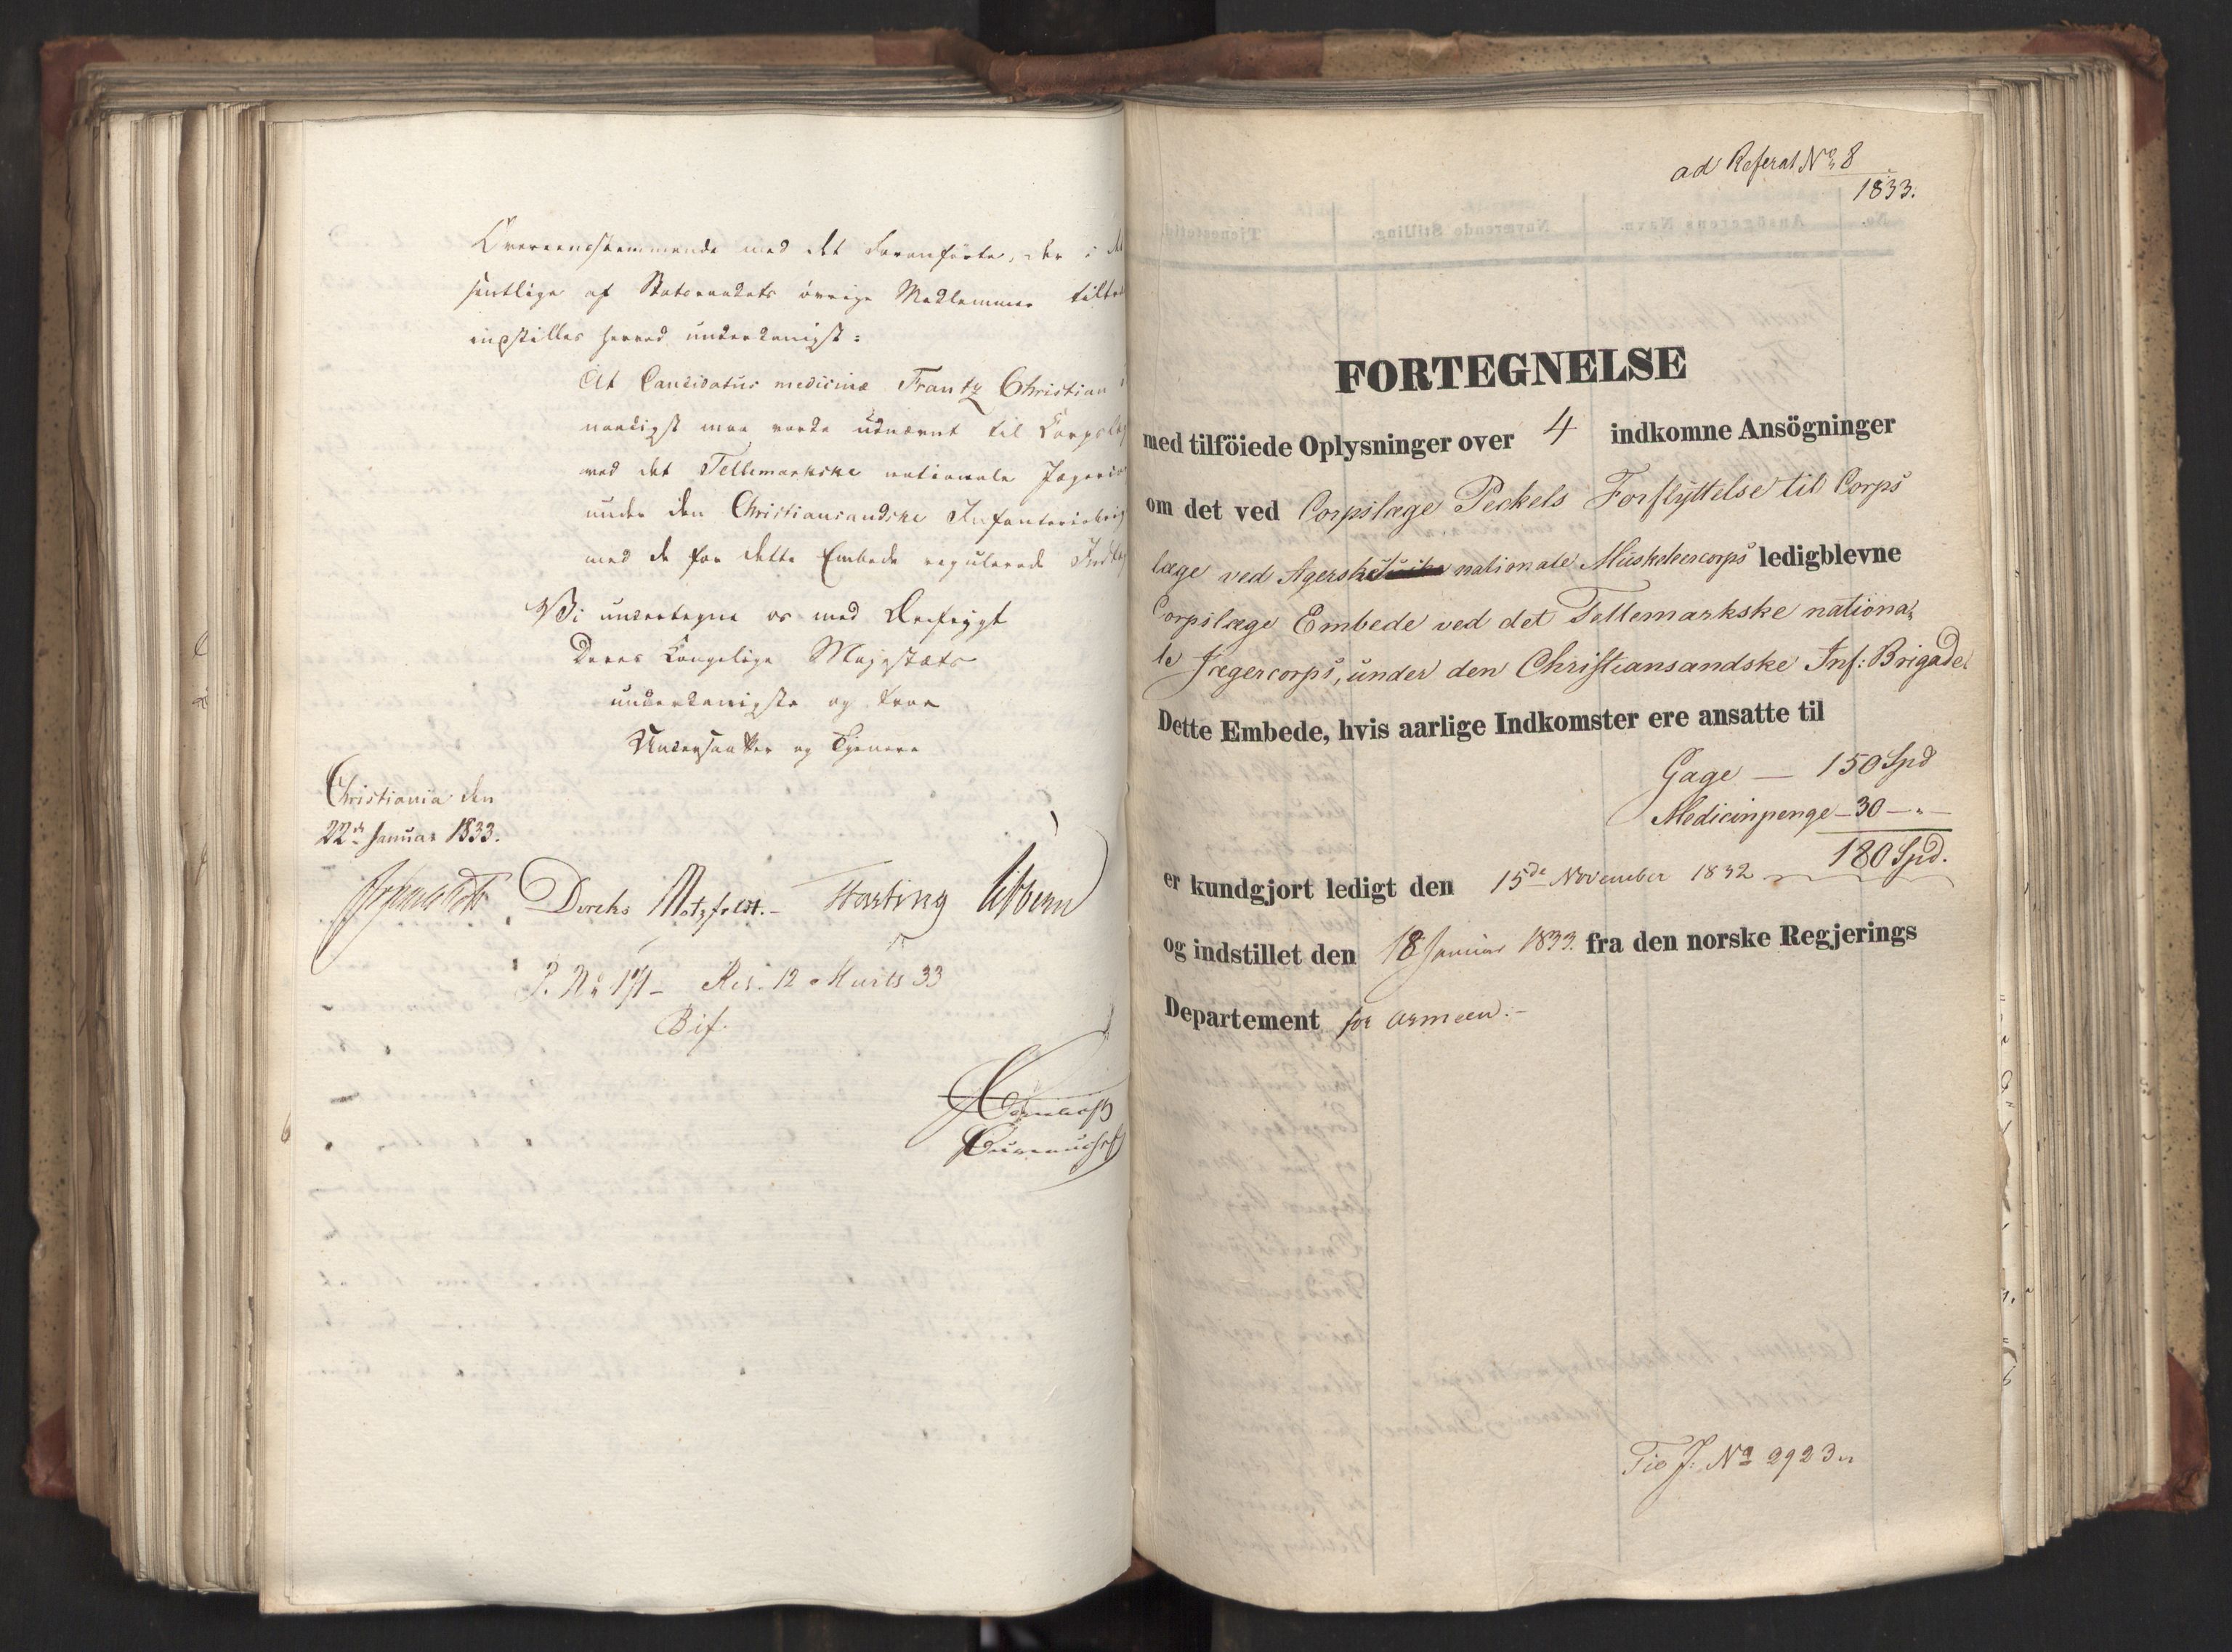 Overeensstemmende med det Foranførte, der i det
sentlige af Statsraadets övrige Medlemmer tiltræ
indstilles herved underdanigst:
At Candidatus medicinæ Frantz Christian
naadigst maa vorde udnævnt til Corpslæ
ved det Tellemarkske nationale Jægerco
under den Christiansandske Infanteriebrig
med de for dette Embede regulerede Indtæg
Vi undertegne os med Ærefrygt
Deres Kongelige Majestæts
underdanigste og troe
Undersaatter og Tjenere
Christiania den
22de Januar 1833.
Diriks Motzfeldt. Fasting Sibbern
P. No 171 – Res. 12 Marts 33
Bif.
ad Referat No 8
1833.
FORTEGNELSE
med tilföiede Oplysninger over 4 indkomne Ansögninger
om det ved Corpslæge Peckels Forflyttelse til Corps
læge ved Agershuske nationale Musketeercorps ledigblevne
Corpslæge Embede ved det Tellemarkske nationa,
le Jægercorps, under den Christiansandske Inf: Brigade.
Dette Embede, hvis aarlige Indkomster ere ansatte til
Gage — 150 Spd
Medicinpenge – 30 – „ –
180 Spd.
er kundgjort ledigt den 15de November 1832
og indstillet den 18 Januar 1833. fra den norske Regjerings
Departement for Armeen.–
J: No 2923